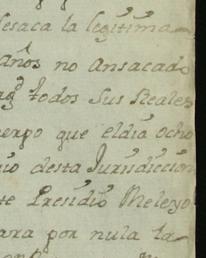 esaca la legitima
años no ansacado
todos sus Reales
erpo que eldia ocho
io desta Jurisdiccion
te Presidio Meleyo
ara por nula la